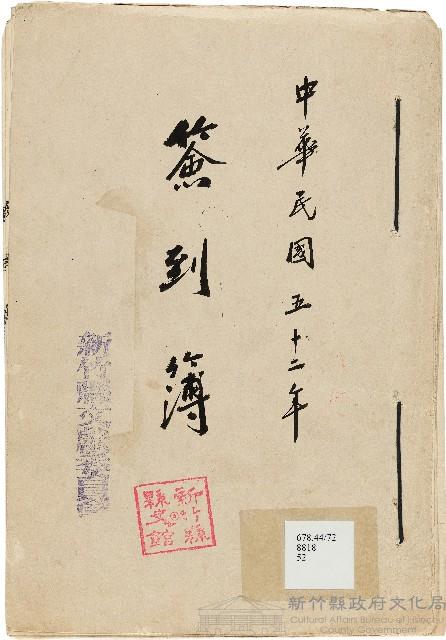 中華民國五十二年
簽到簿
新竹縣文獻委員會
新竹縣
縣史館
678.44/72
8818
52
新竹縣政府文化局
Cultural Affairs Bureau of Hsinchu
County Government